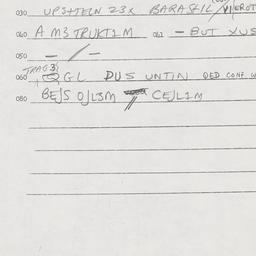 030 UPSHTEIN 23X BARASLIL
040 A M3 TRUKTIM 041 - BUT XUS
050 - / -
TRAG 3
060 GL DUS UNTIN DED CONF W
080 BEJS OJL3M CEJLIM